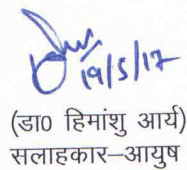 19/5/17
(डा0 हिमांशु आर्य)
सलाहकार–आयुष